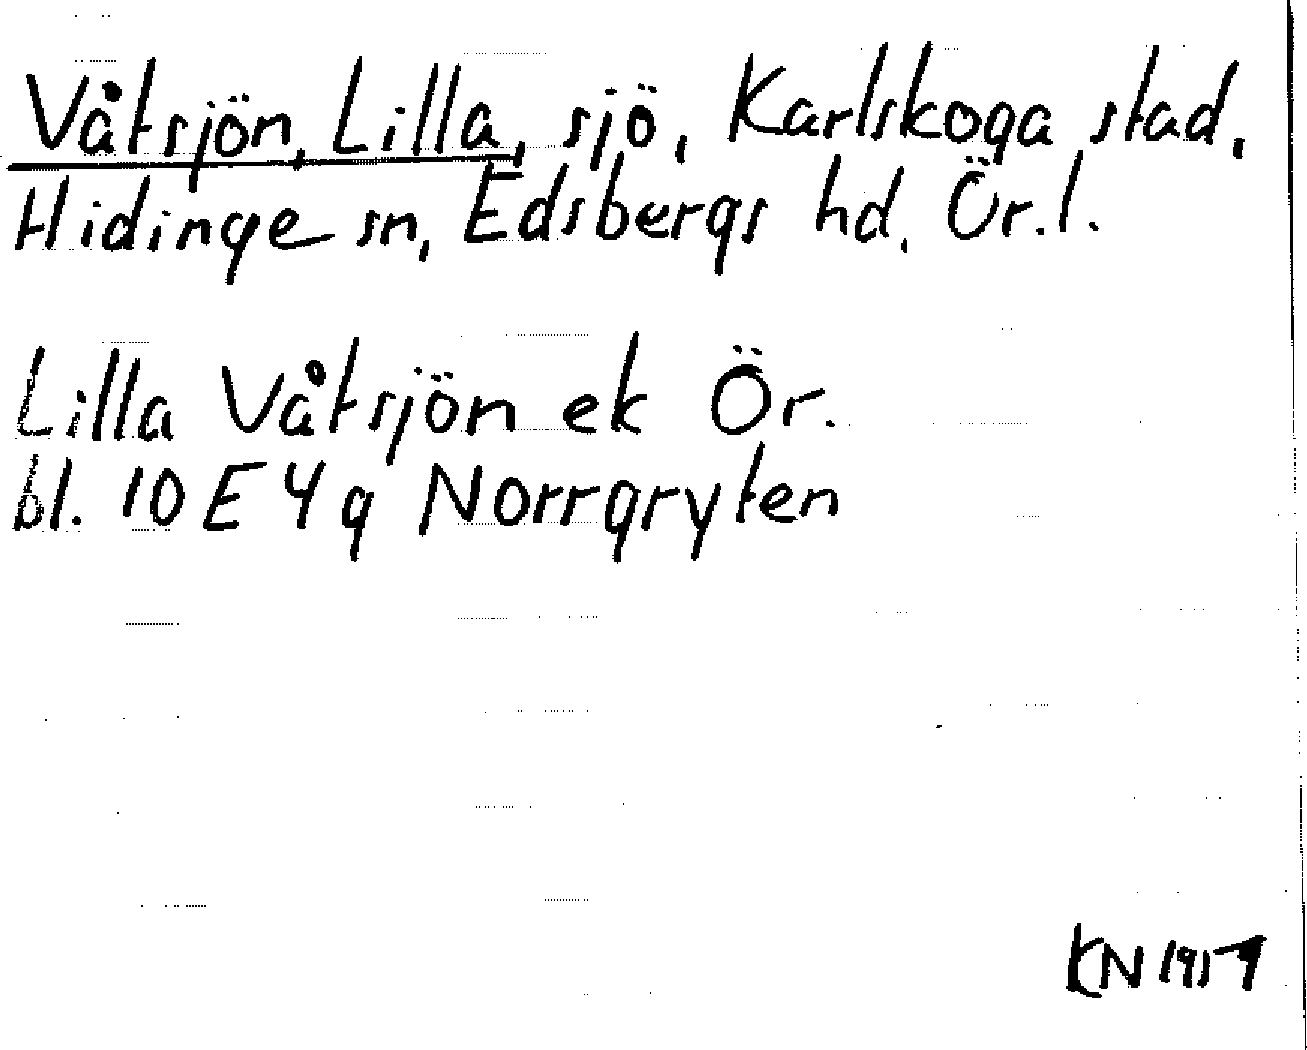 Våtsjön, Lilla, sjö, Karlskoga stad,
Hidinge sn, Edsbergs hd, Ör.l.
Lilla Våtsjön ek Ör.
bl. 10 E 4 g Norrgryten
KN